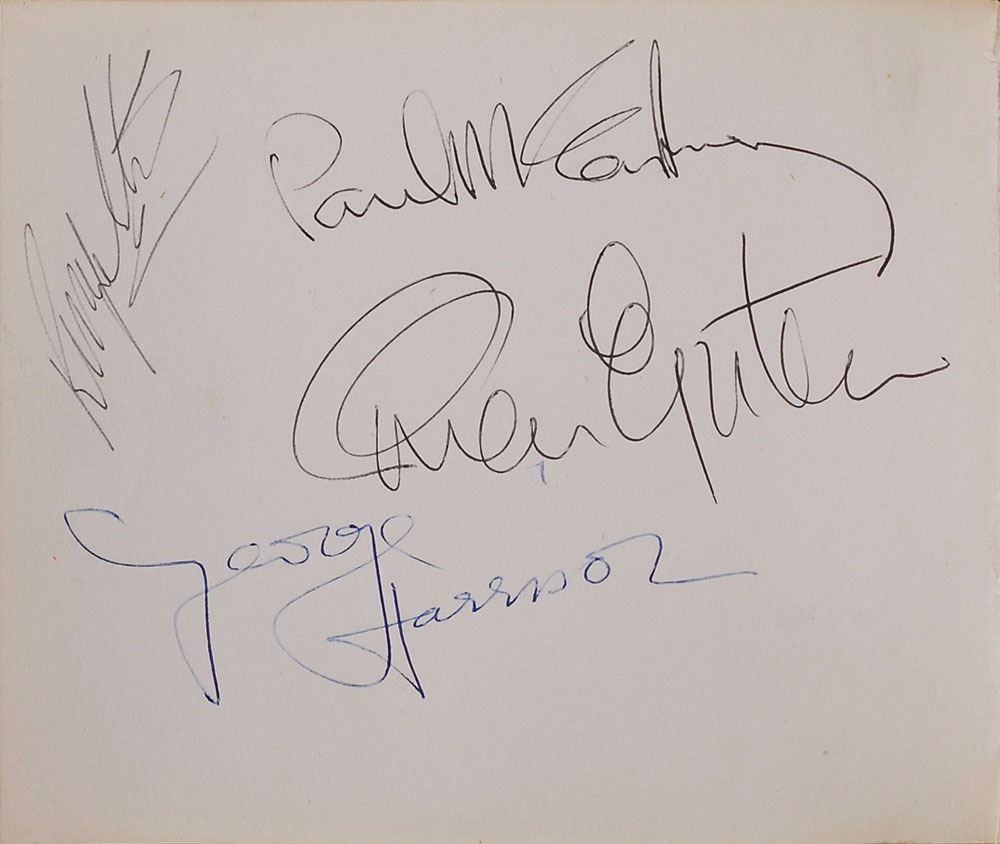 Ringo Starr
Paul McCartney
Brian Epstein
George
Harrison